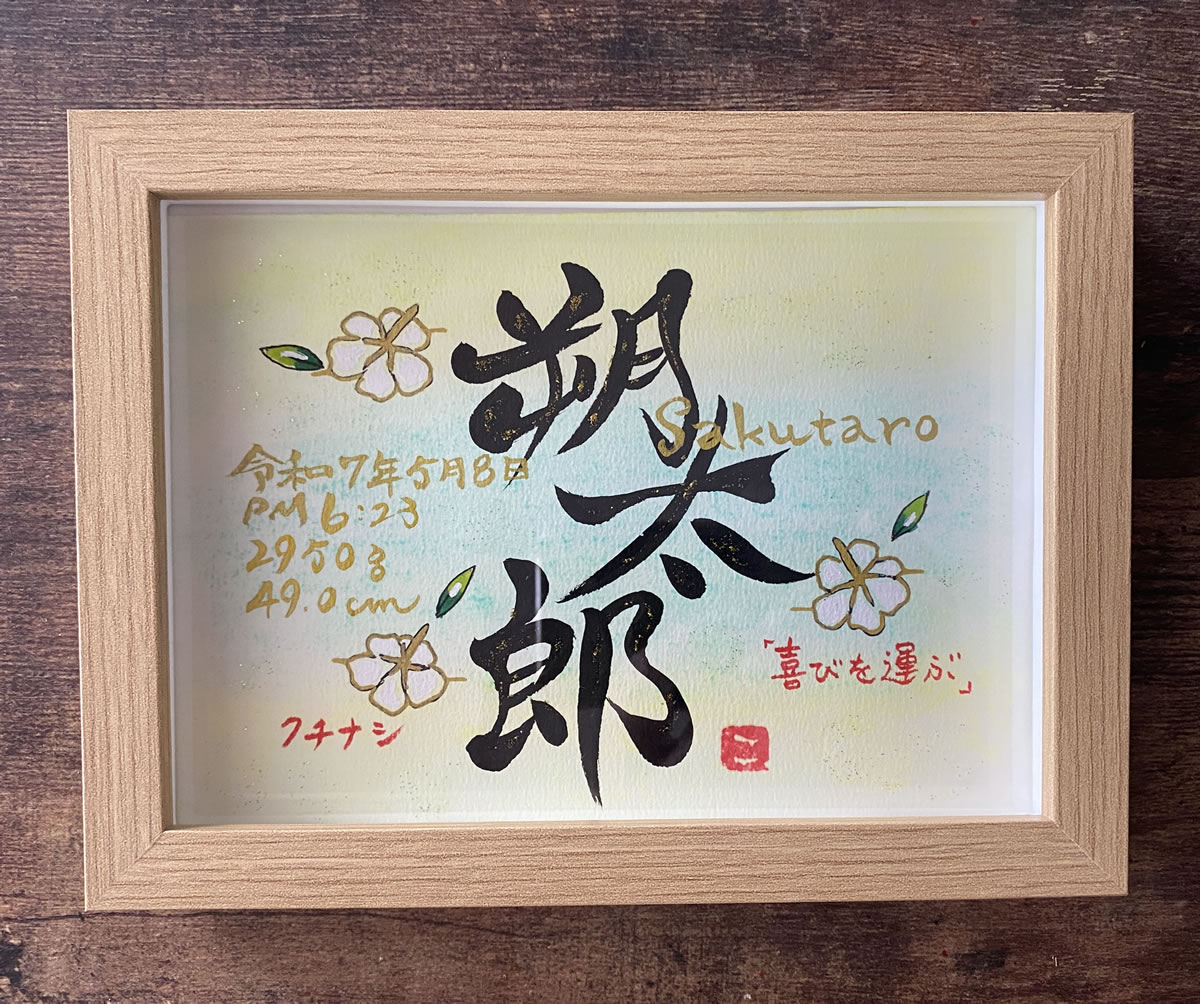 朔太郎
Sakutaro
令和7年5月8日
PM 6:23
2950g
49.0cm
クチナシ
「喜びを運ぶ」
こ